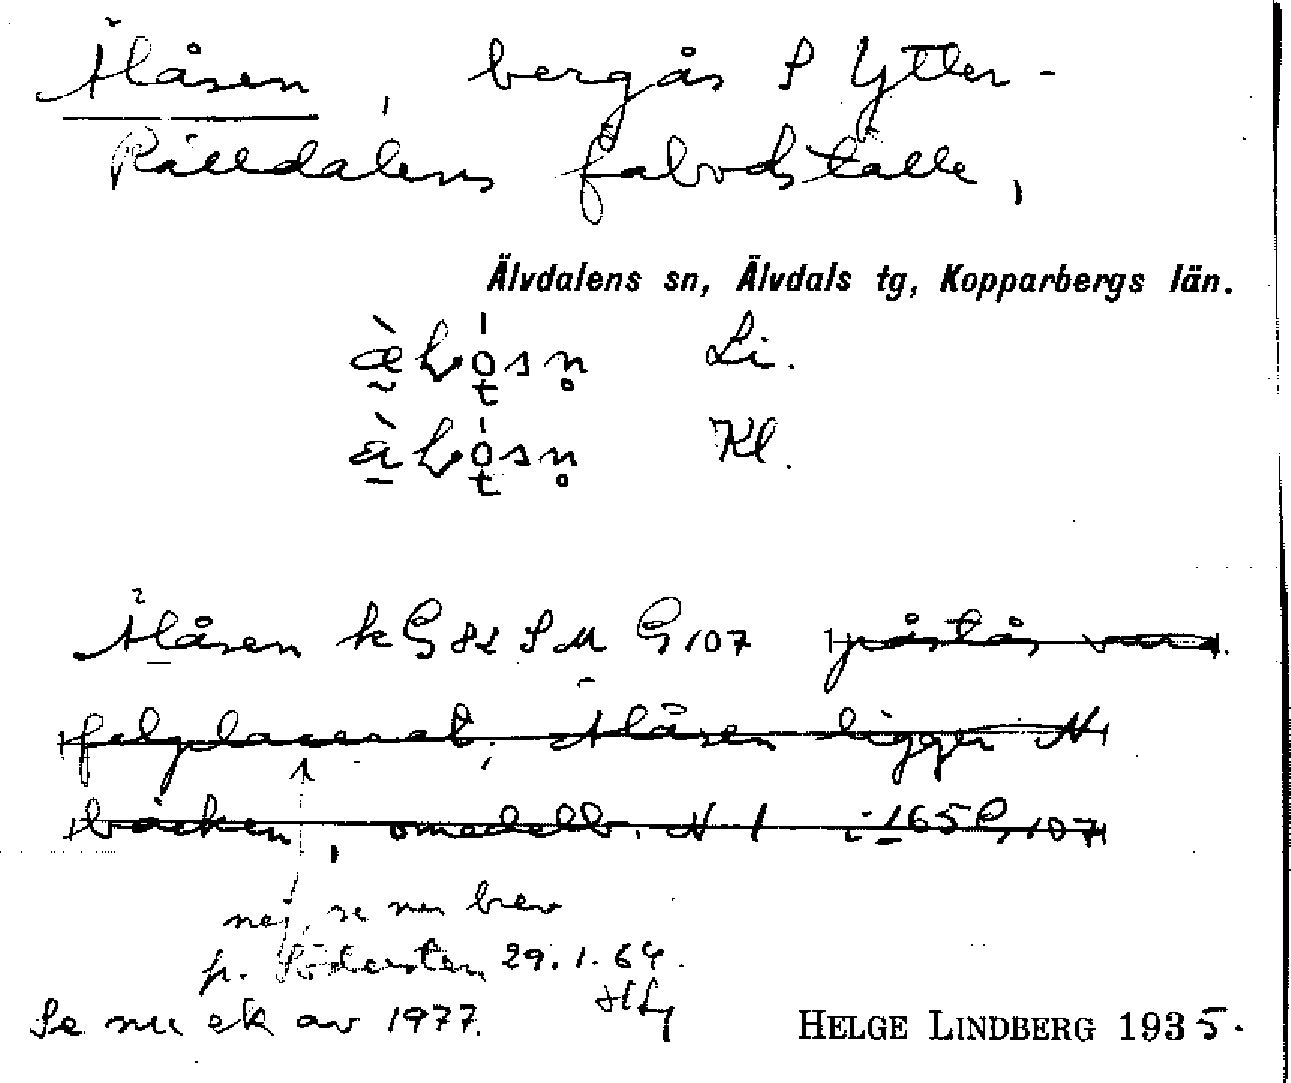 Älåsen, bergås S Ytter-
Rälldalens fäbodställe,
Älvdalens sn, Älvdals tg, Kopparbergs län.
Li.
Kl.
Älåsen k G 82 SM G 107 påstås vara
felplacerat, Älåsen ligger N
bäcken, omedelb. N 1 i 165 G 107
nej, se nu brev
fr. Södersten 29.1.64.
HLg
Se nu ek av 1977.
HELGE LINDBERG 1935.